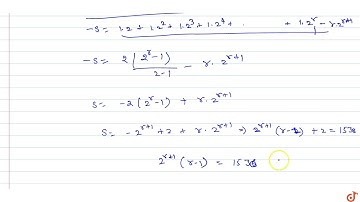 -S = 1.2 + 1.2² + 1.2³ + 1.2⁴ + . . + 1.2ʳ - r.2ʳ⁺¹
-S = 2 (2ʳ-1) / 2-1 - r. 2ʳ⁺¹
S = -2 (2ʳ-1) + r. 2ʳ⁺¹
S = -2ʳ⁺¹ + 2 + r. 2ʳ⁺¹ ⇒ 2ʳ⁺¹ (r-1) + 2 = 1538
2ʳ⁺¹ (r-1) = 153